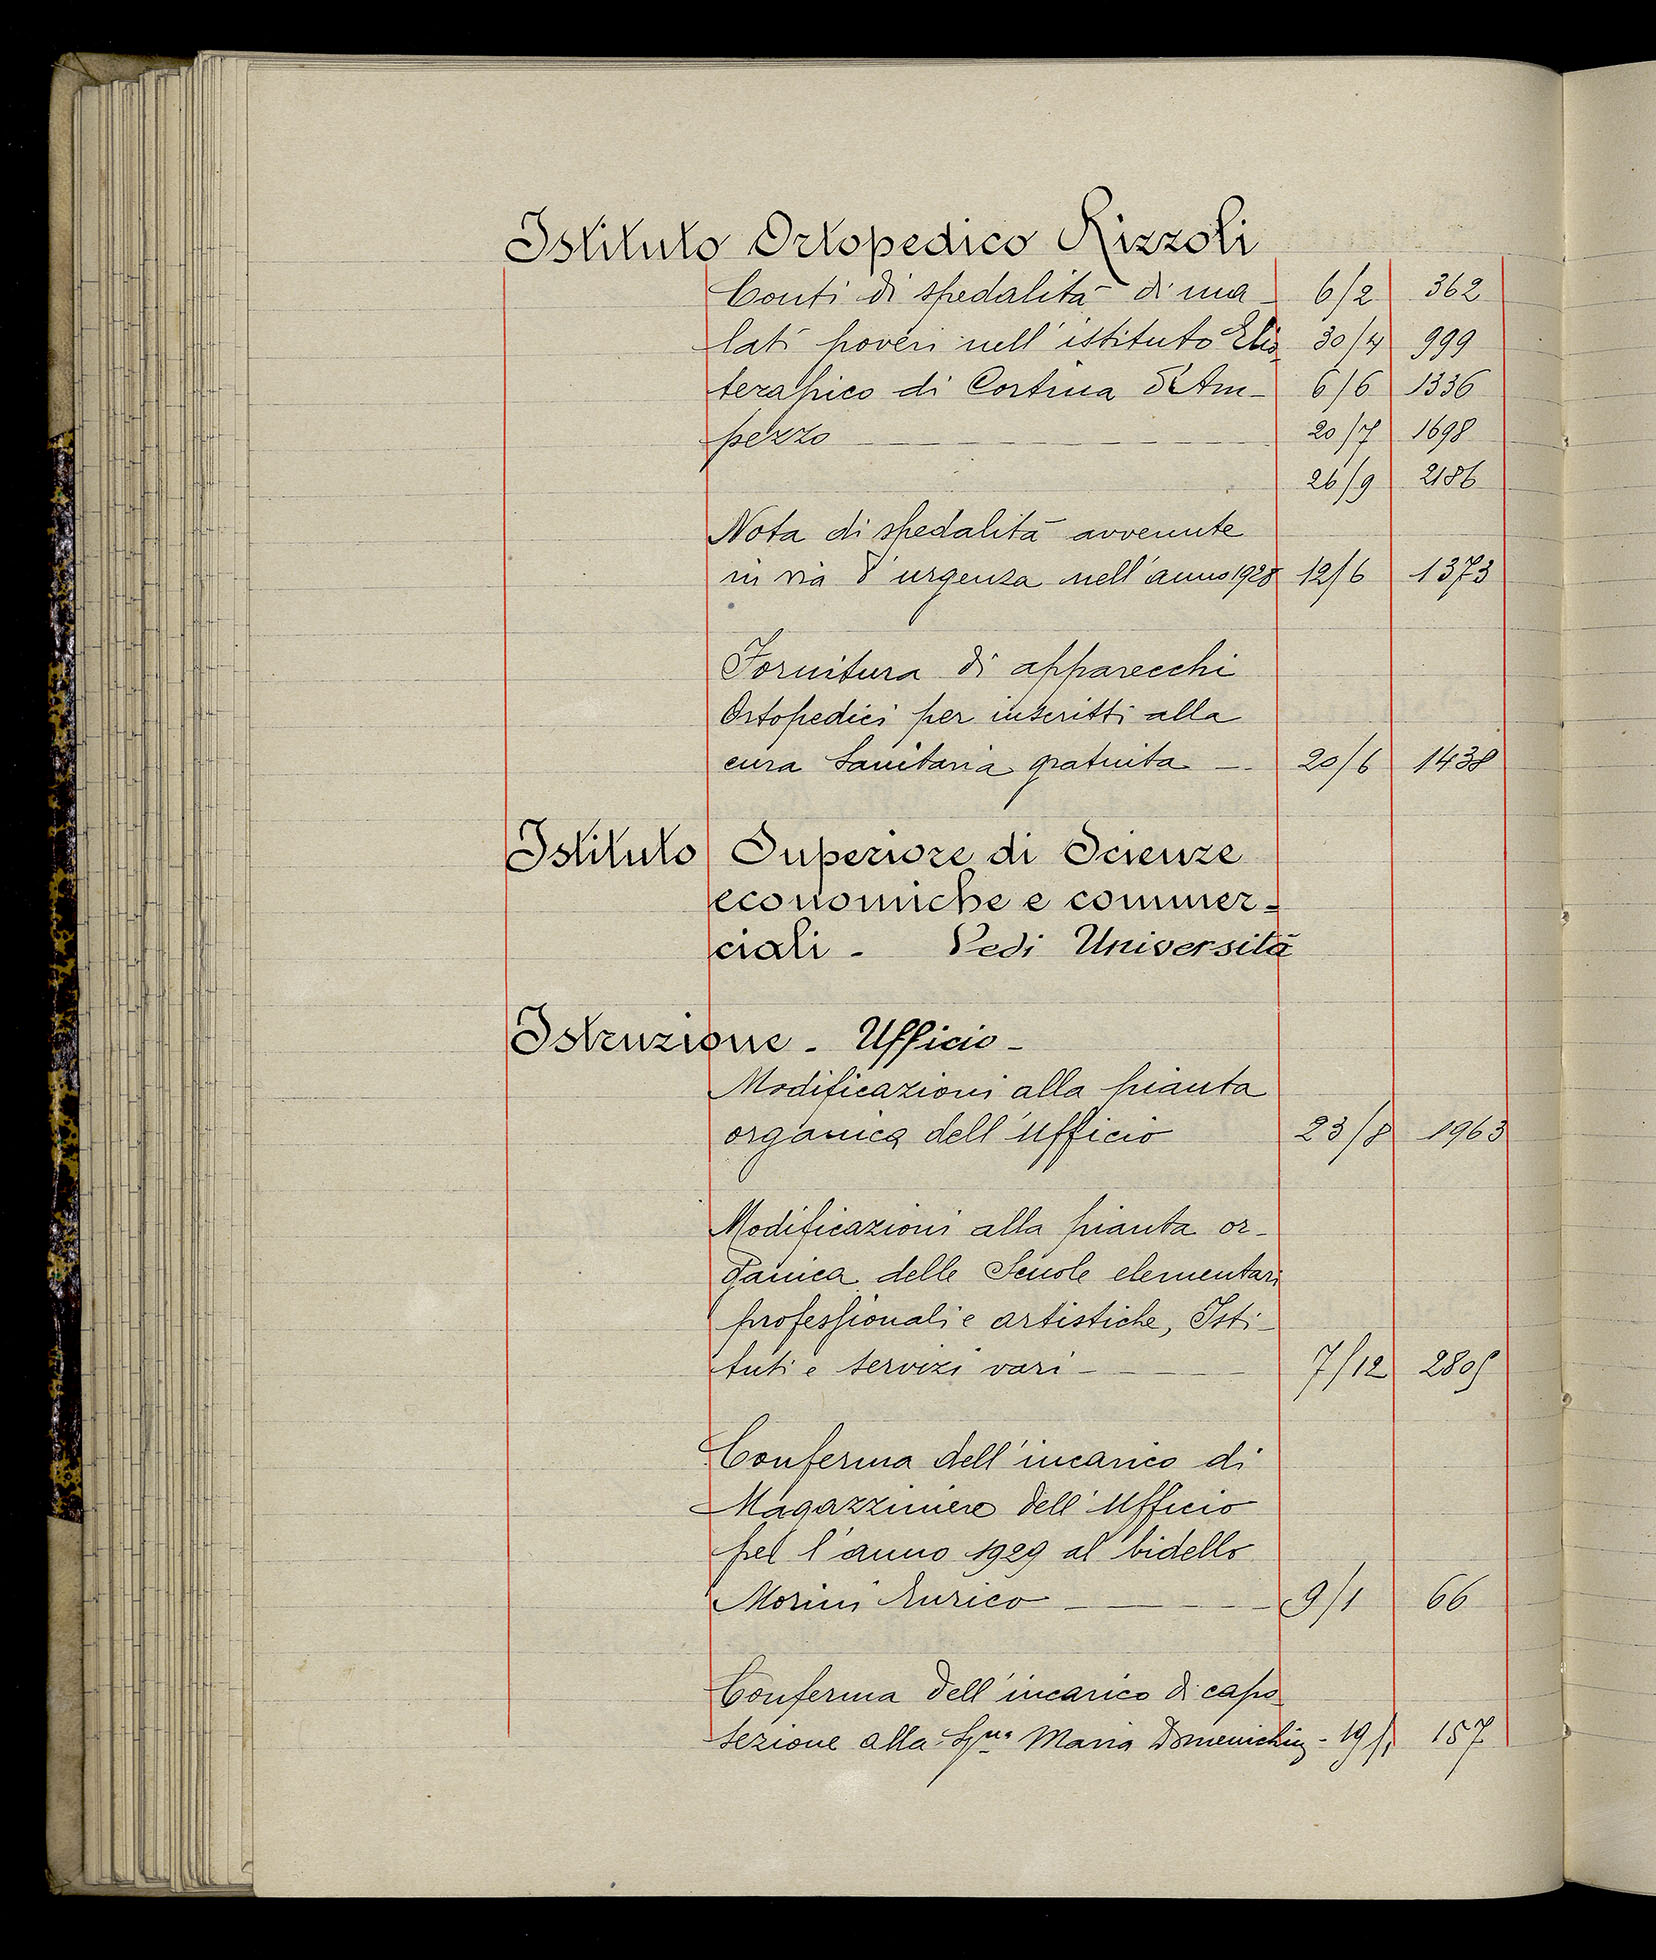 Istituto Ortopedico Rizzoli
Conti di spedalità di ma- 6/2 362
lati poveri nell'istituto Elio 30/4 999
terapico di Cortina d'Am- 6/6 1336
pezzo 20/7 1698
26/9 2186
Nota di spedalità avvenute
in via d'urgenza nell'anno 1928 12/6 1373
Fornitura di apparecchi
Ortopedici per inscritti alla
cura Sanitaria gratuita - 20/6 1438
Istituto Superiore di Scienze
economiche e commer-
ciali - Vedi Università
Istruzione - Ufficio -
Modificazioni alla pianta
organica dell'Ufficio 23/8 1963
Modificazioni alla pianta or-
ganica delle Scuole elementari
professionali e artistiche, Isti-
tuti e servizi vari - 7/12 2805
Conferma dell'incarico di
Magazziniere dell'Ufficio
pel l'anno 1929 al bidello
Morini Enrico 9/1 66
Conferma dell'incarico di capo
sezione alla Sig.na Maria Domenichini - 19/1 157